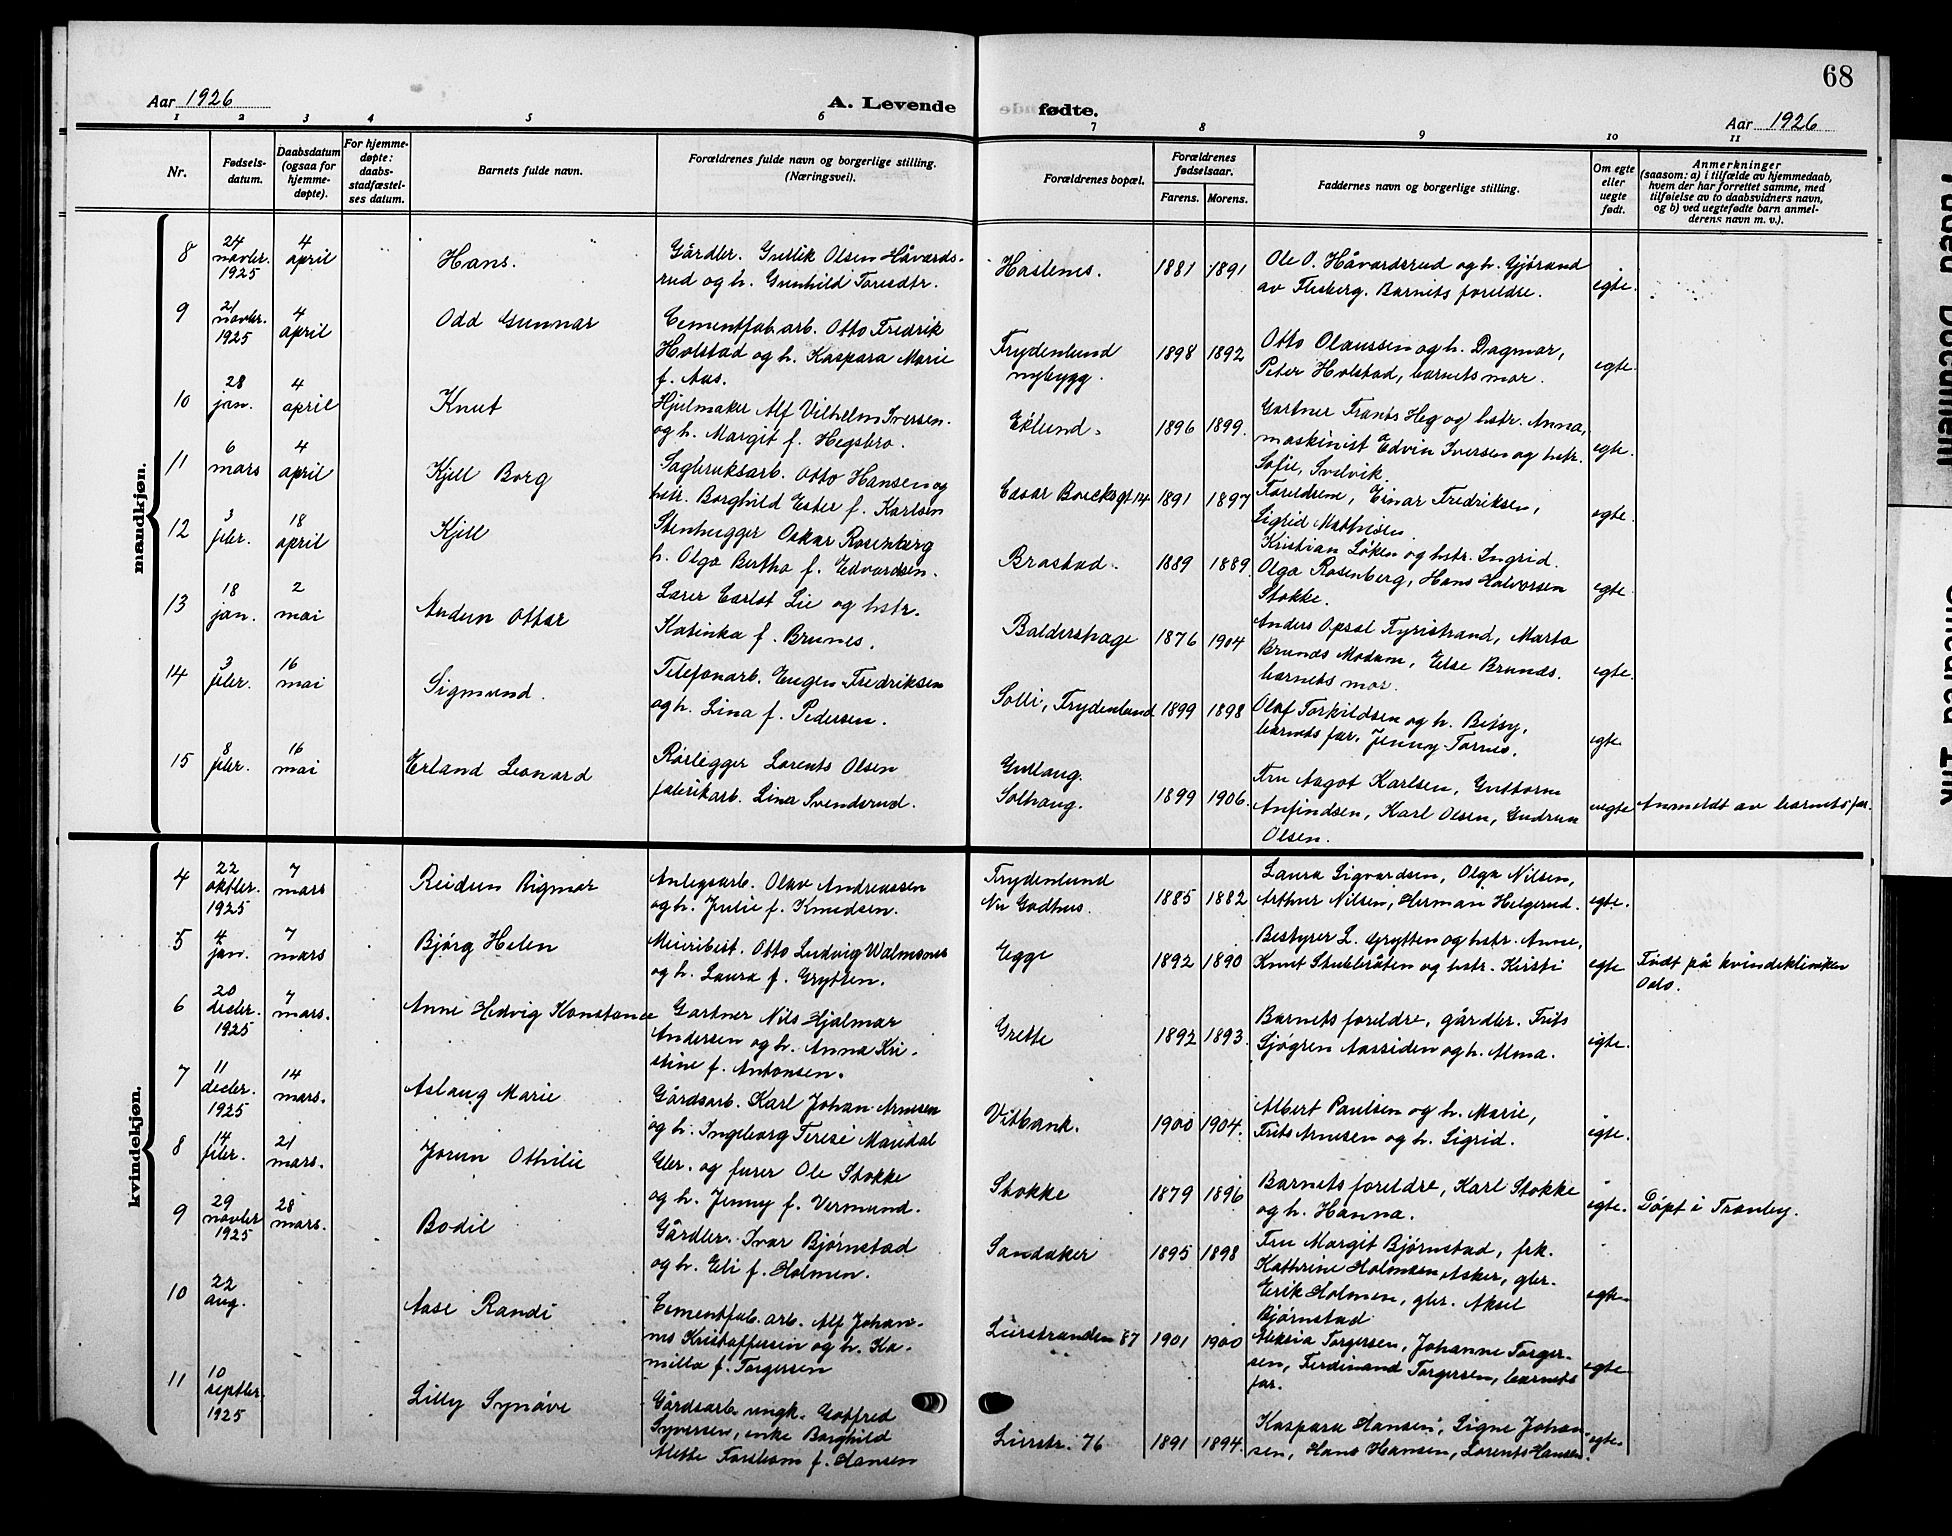 68
Aar 1926
A. Levende fødte.
Aar 1926
1 2 3 4 5 6 7 8 9 10 11
Nr.
Fødsels-
datum.
Daabsdatum
(ogsaa for
hjemme-
døpte).
For hjemme-
døpte:
daabs-
stadfæstel-
ses datum.
Barnets fulde navn.
Forældrenes fulde navn og borgerlige stilling.
(Næringsvei).
Forældrenes bopæl.
Forældrenes
fødselsaar.
Farens. Morens.
Faddernes navn og borgerlige stilling.
Om egte
eller
uegte
født.
Anmerkninger
(saasom: a) i tilfælde av hjemmedaab,
hvem der har forrettet samme, med
tilføielse av to daabsvidners navn,
og b) ved uegtefødte barn anmel-
derens navn m. v.).
mandkjøn.
8
24
novbr.
1925
4
april
Hans.
Gårdbr. Gullik Olsen Håvards-
rud og h. Gunhild Toresdtr.
Haslenes.
1881 1891
Ole O. Håvardsrud og h. Gjørand
av Flesberg. Barnets foreldre.
egte.
9
21
novbr.
1925
4
april
Odd Gunnar
Cementfab. arb. Otto Fredrik
Holstad og h. Kaspara Marie
f. Aas.
Frydenlund
nybygg.
1898 1892
Otto Olaussen og h. Dagmar,
Peter Holstad, barnets mor.
egte.
10
28
jan.
4
april
Knut
Hjulmaker Alf Vilhelm Iversen
og h. Margit f. Hegsbro.
Eklund.
1896 1899.
Gartner Frants Heg og hstr. Anna,
maskinist Edvin Iversen og hstr.
Sofie, Svelvik.
egte.
11
6
mars
4
april
Kjell Borg
Sagbruksarb. Otto Hansen og
hstr. Borghild Ester f. Karlsen
Cæsar Boecksgt 14
1891 1897
Foreldrene, Einar Fredriksen,
Sigrid Mathisen.
egte.
12
3
febr.
18
april
Kjell
Stenhugger Oskar Rosenberg
h. Olga Bertha f. Edvardsen.
Brastad.
1889 1889.
Kristian Løken og hstr. Ingrid.
Olga Rosenberg, Hans Halvorsen
Stokke.
egte.
13
18
jan.
2
mai
Audun Ottar
Lærer Carlot Lie og hstr.
Katinka f. Brunes.
Baldershage
1876 1904
Anders Opsal Tyristrand, Marta
Brunes Modum, Else Brunes.
barnets mor.
egte.
14
3
febr.
16
mai
Sigmund.
Telefonarb. Eugen Fredriksen
og h. Lina f. Pedersen.
Solli, Frydenlund
1899 1898
Olaf Torkildsen og h. Betsy,
barnets far. Jenny Tornes.
egte.
15
8
febr.
16
mai
Erland Leonard
Rørlegger Lorents Olsen
fabrikarb. Lina Svendsrud.
Gullaug.
Solhaug.
1899 1906.
Fru Aagot Karlsen, Guttorm
Anfindsen, Karl Olsen, Gudrun
Olsen.
uegte
Anmeldt av barnets far.
kvindekjøn.
4
22
oktbr.
1925
7
mars
Reidun Rigmor
Anlegsarb. Olav Andreassen
og h. Julie f. Knudsen.
Frydenlund
Nu Godthus.
1885 1882
Laura Sigvardsen, Olga Nilsen,
Arthur Nilsen, Herman Helgerud.
egte.
5
4
jan.
7
mars
Bjørg Helen
Meieribest. Otto Ludvig Walmsnes
og h. Laura f. Grytten.
Egge
1892 1890
Bestyrer L. Grytten og hstr. Anne,
Knut Stubberåten og hstr. Kirsti
egte
Født på kvindekliniken
Oslo.
6
20
decbr.
1925
7
mars.
Anne Hedvig Konstance
Gartner Nils Hjalmar
Andersen og h. Anna Kri-
stine f. Antonsen.
Grette
1892 1893.
Barnets foreldre, gårdbr. Frits
Sjøgren Aassiden og h. Alma.
egte.
7
11
decbr.
1925
14
mars.
Aslaug Marie
Gårdsarb. Karl Johan Arnesen
og h. Ingeborg Terese Mandal
Vitbank.
1900 1904.
Albert Paulsen og h. Marie,
Frits Arnesen og h. Sigrid.
egte.
8
14
febr.
21
mars.
Jorun Othilie
Gbr. og furer Ole Stokke
og h. Jenny f. Vermund.
Stokke
1879 1896
Barnets foreldre, Karl Stokke
og h. Hanna.
egte.
Døpt i Tranby.
9
29
novbr
1925
28
mars.
Bodil
Gårdbr. Ivar Bjørnstad
og h. Eli f. Holmen.
Sandaker
1895 1898
Fru Margit Bjørnstad, frk.
Kathrine Holmen Asker, gbr.
Erik Holmen, gbr. Aksel
Bjørnstad
egte.
10
22
aug.
Aase Randi
Cementfab. arb. Alf Johan-
nes Kristoffersen og h. Ka-
milla f. Torgersen
Lierstranden 87
1901 1900
Aleksia Torgersen, Johanne Torger-
sen, Ferdinand Torgersen, barnets
far.
egte
11
10
septbr.
1925
Lilly Synøve
Gårdsarb. ungk. Gotfred
Syversen, enke Borghild
Alette Forsbom f. Hansen
Lierstr. 76
1891 1894.
Kaspara Hansen, Signe Johan-
sen, Hans Hansen, Lorents Hansen.
egte.